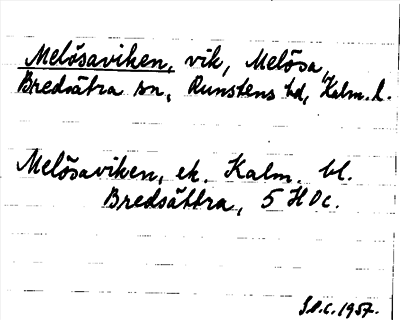 Melösaviken, vik, Melösa,
Bredsätra sn, Runstens hd, Kalm. l.
Melösaviken, ek. Kalm. bl.
Bredsättra, 5 H Dc.
1957.